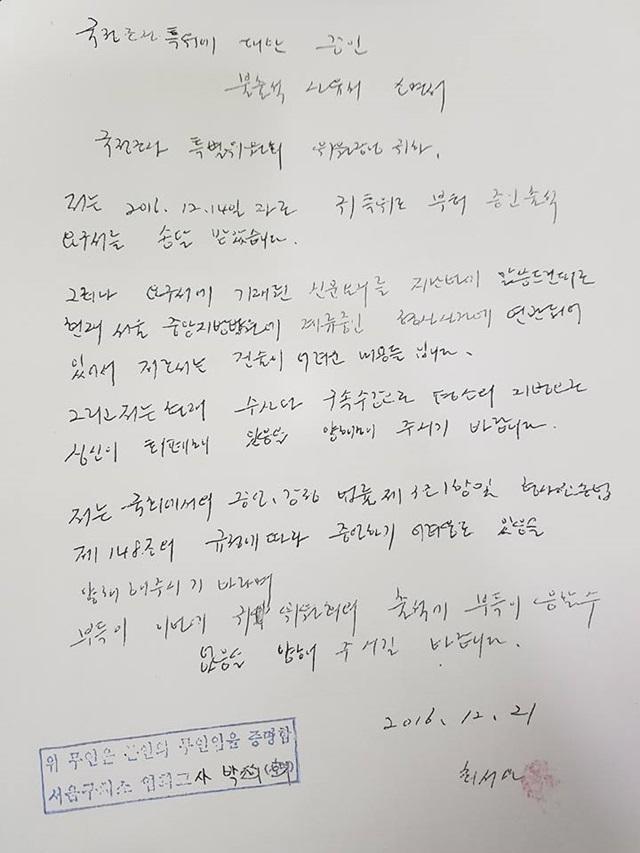 국정조사 특위에 대한 증인
불출석 사유서 소명서
국정조사 특별위원회 위원장님 귀하.
저는 2016. 12. 14일 자로 귀 특위로 부터 증인출석
요구서를 송달 받았습니다.
그러나 요구서에 기재된 신문요지를 지난번에 말씀드린대로
현재 서울 중앙지방법원에 계류중인 형사사건에 연관되어
있어서 저로서는 진술이 어려운 내용들 입니다.
그리고 저는 현재 수사와 구속수감으로 평소의 지병으로
심신이 피폐해 있음을 양해해 주시기 바랍니다.
저는 국회에서의 증언, 감정 법률 제 3조 1항 및 형사소송법
제 148조의 규정에 따라 증언하기 어려움도 있음을
양해 해 주시기 바라며
부득이 이번에 귀 위원회의 출석에 부득이 응할 수
없음을 양해 주시길 바랍니다.
2016. 12. 21
최서원
위 무인은 본인의 무인임을 증명함
서울구치소 교 사 박